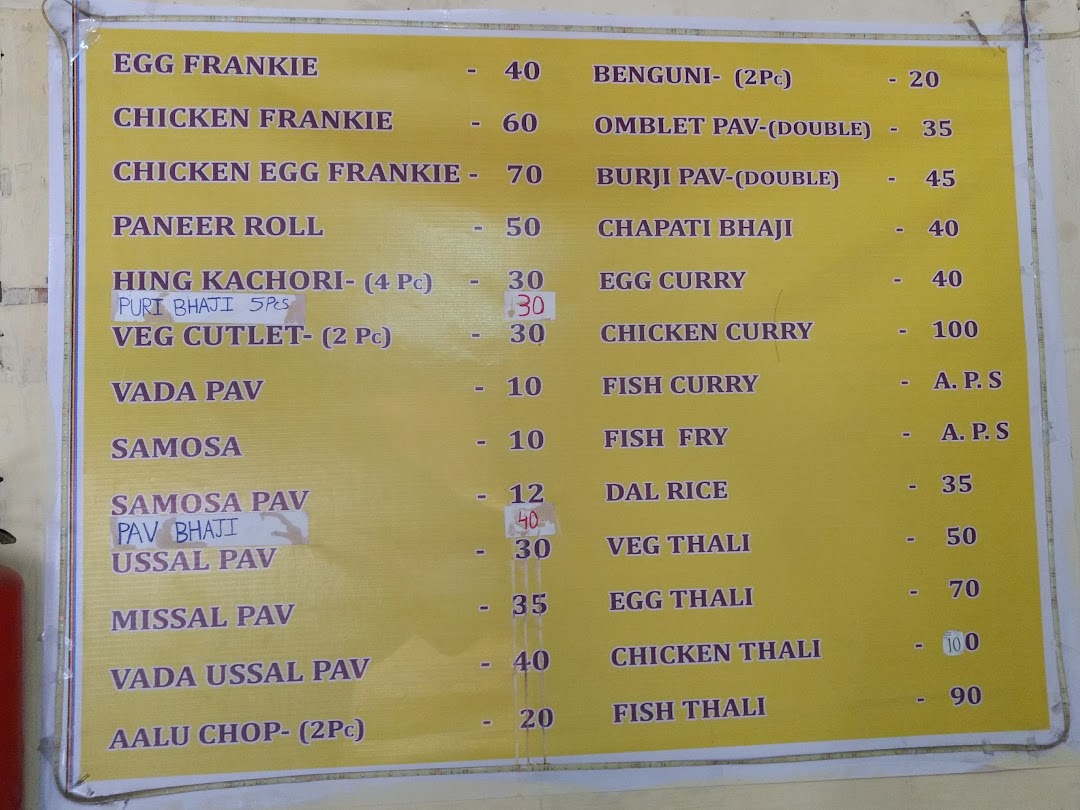 EGG FRANKIE - 40
CHICKEN FRANKIE - 60
CHICKEN EGG FRANKIE - 70
PANEER ROLL - 50
HING KACHORI- (4 Pc) - 30
PURI BHAJI 5Pcs 30
VEG CUTLET- (2 Pc) - 30
VADA PAV - 10
SAMOSA - 10
SAMOSA PAV - 12
PAV BHAJI 40
USSAL PAV - 30
MISSAL PAV - 35
VADA USSAL PAV - 40
AALU CHOP- (2Pc) - 20
BENGUNI- (2Pc) - 20
OMBLET PAV-(DOUBLE) - 35
BURJI PAV-(DOUBLE) - 45
CHAPATI BHAJI - 40
EGG CURRY - 40
CHICKEN CURRY - 100
FISH CURRY - A. P. S
FISH FRY - A. P. S
DAL RICE - 35
VEG THALI - 50
EGG THALI - 70
CHICKEN THALI - 100
FISH THALI - 90